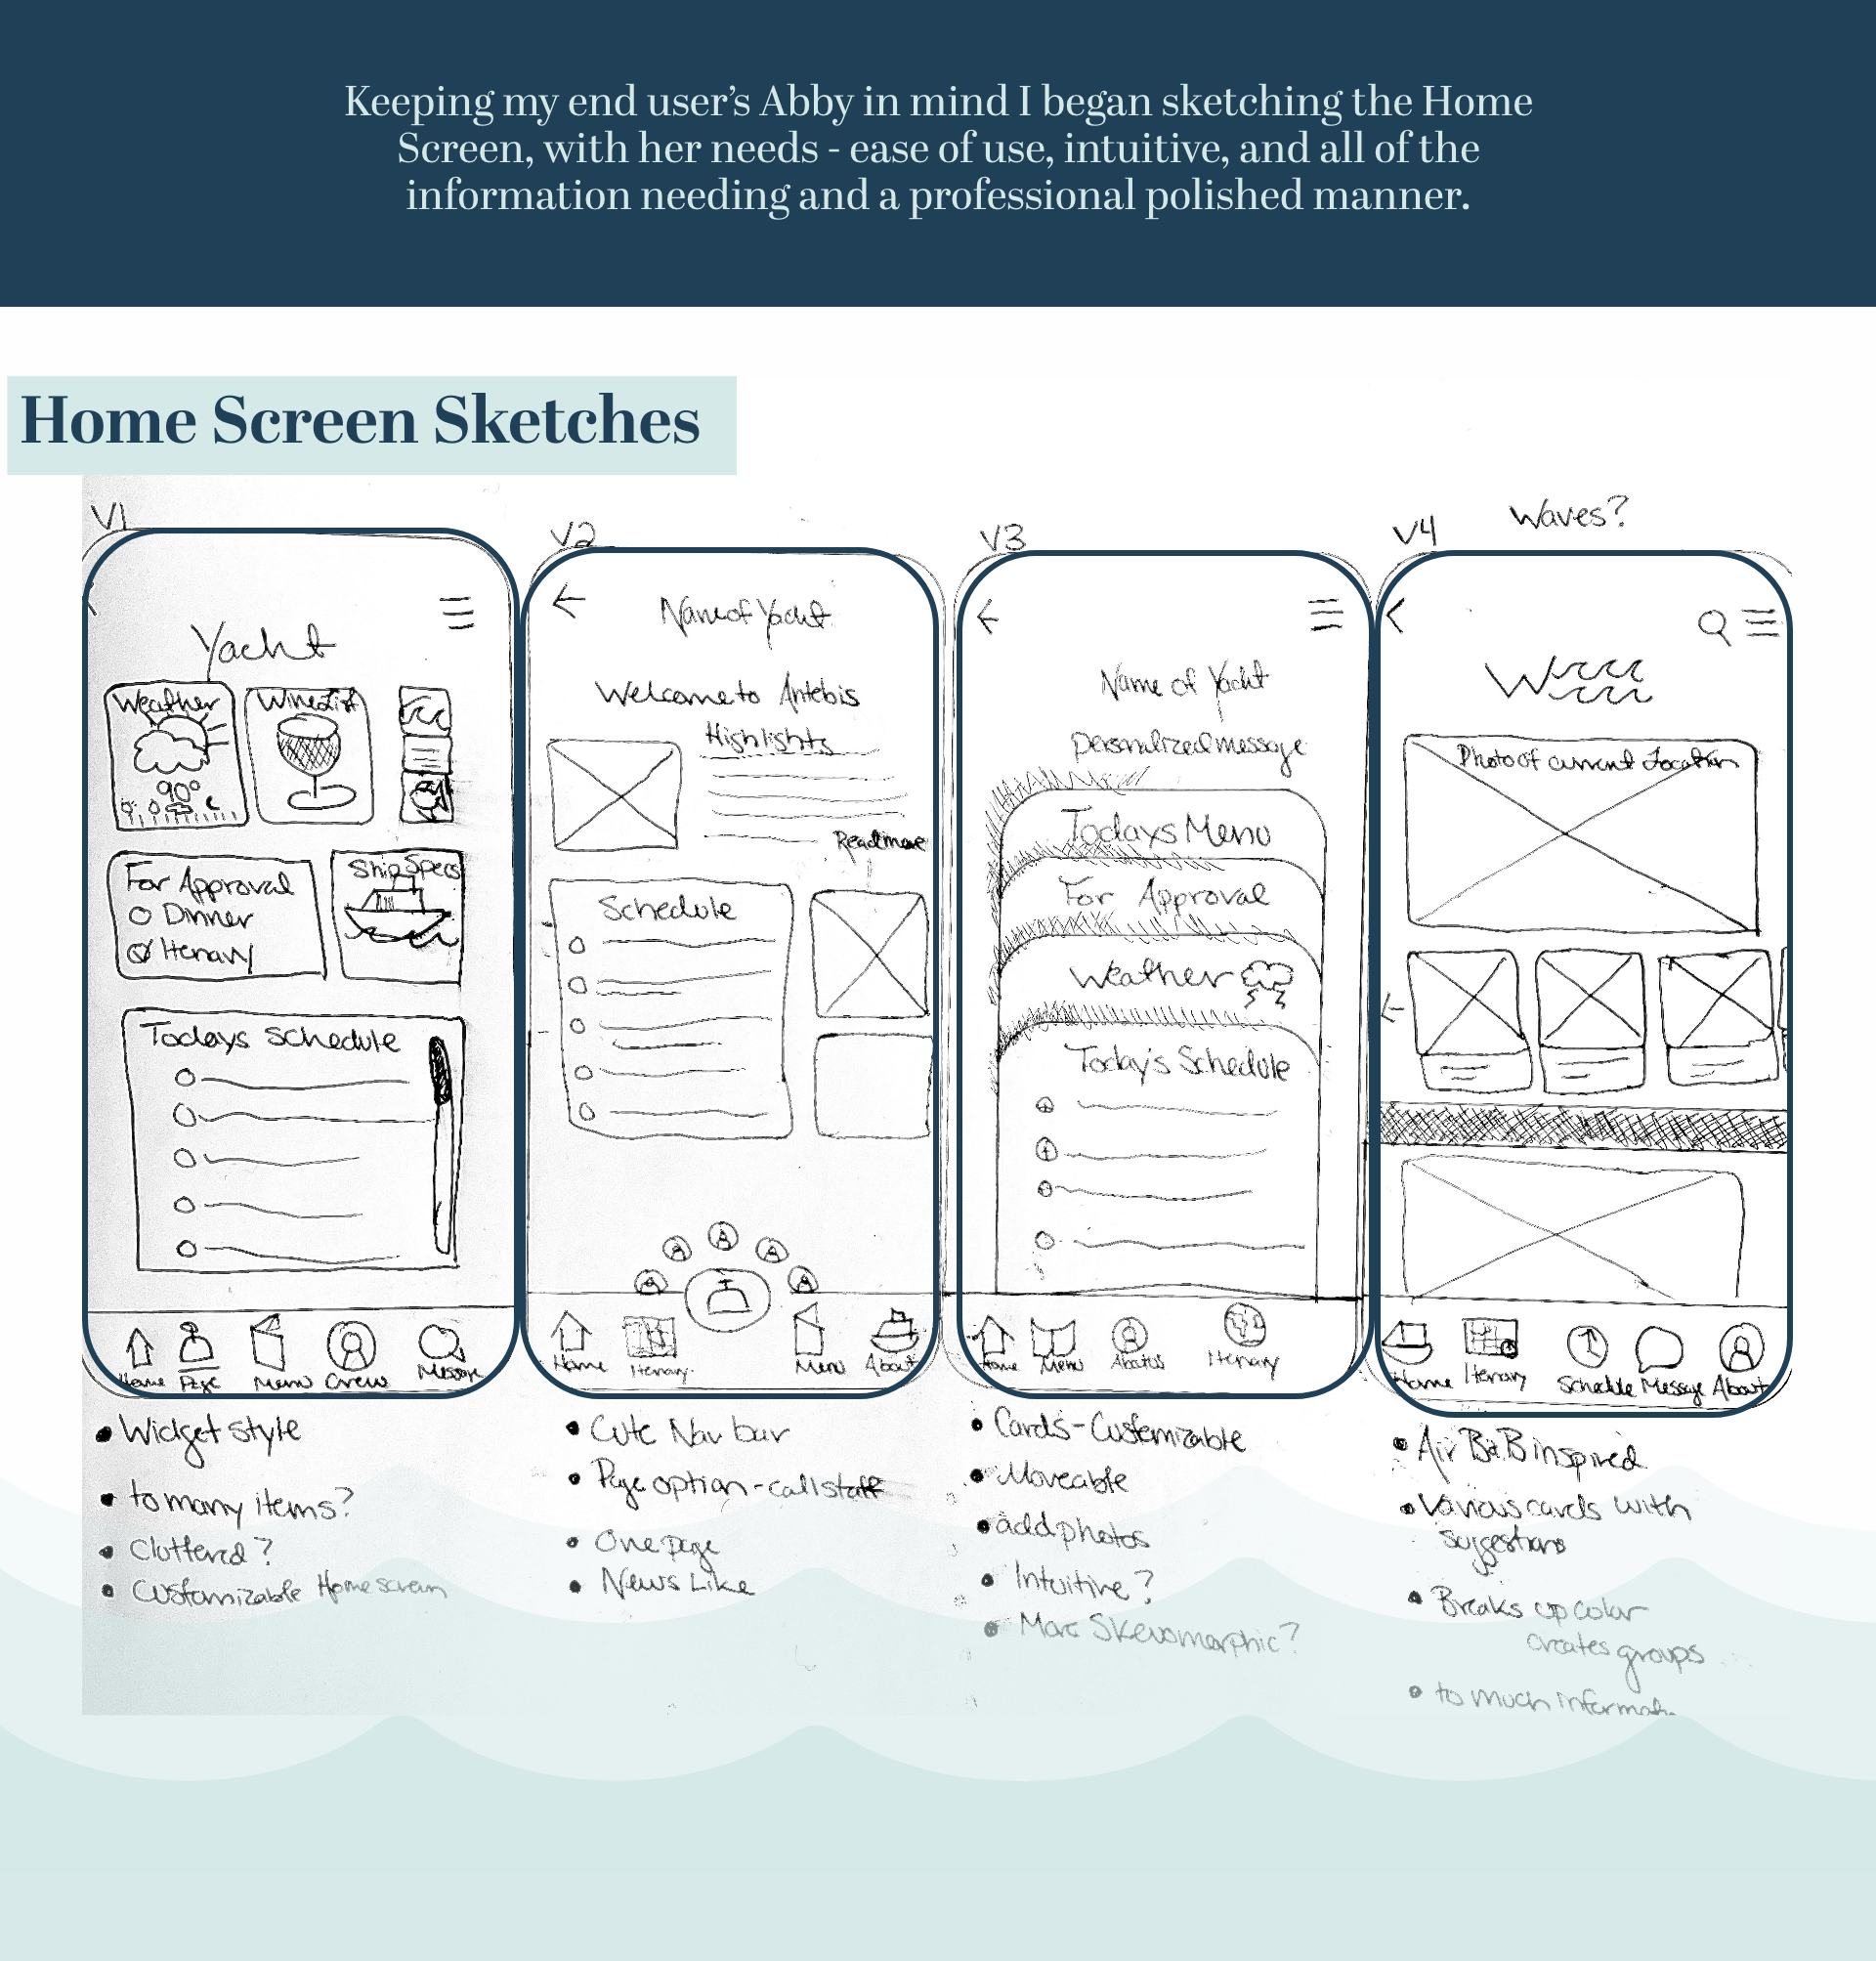 Keeping my end user’s Abby in mind I began sketching the Home
Screen, with her needs - ease of use, intuitive, and all of the
information needing and a professional polished manner.
Home Screen Sketches
V1
Yacht
Weather
90°
Wine List
For Approval
Dinner
Itenary
Ship Specs
Todays Schedule
Home Page Menu Crew Message
Widget style
to many items?
Cluttered?
Customizable Home screen
V2
Name of Yacht
Welcome to Antebis
Highlights
Read more
Schedule
Home Itenary Menu About
Cute Nav bar
Page option - call staff
One page
News Like
V3
Name of Yacht
personalized message
Todays Menu
For Approval
Weather
Today's Schedule
Home Menu About us Itenary
Cards - Customizable
Moveable
add photos
Intuitive?
More Skeuomorphic?
V4
Waves?
Photo of current Location
Home Itenary Schedule Message About
Air B&B inspired
Various cards with
suggestions
Breaks up color
creates groups
to much